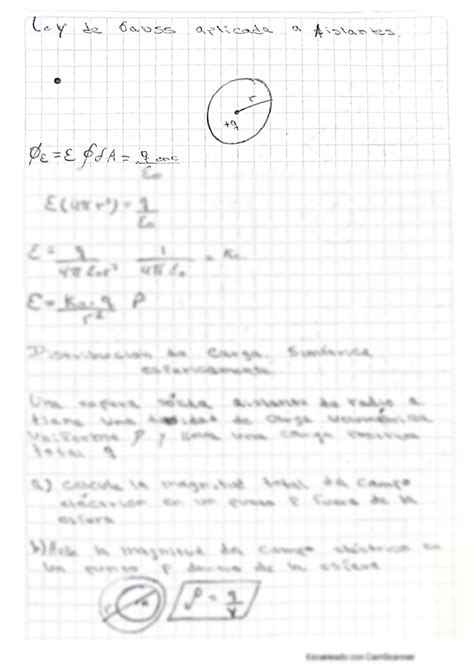 Ley de Gauss aplicada a Aislantes.
r
+q
ϕE = E ∮ dA = q enc / ε0
E(4πr²) = q / ε0
E = q / 4π ε0 r²   1 / 4π ε0 = Ke
E = Ke · q / r²   P
Distribucion de carga. Simétrica
esfericamente
Una esfera sólida aislante de radio a
tiene una densidad de carga volumétrica
Uniforme ρ y lleva una carga positiva
total q
a) calcule la magnitud total del campo
eléctrico en un punto P fuera de la
esfera
b) Halle la magnitud del campo eléctrico en
un punto P dentro de la esfera
r a ρ = q / V
Escaneado con CamScanner